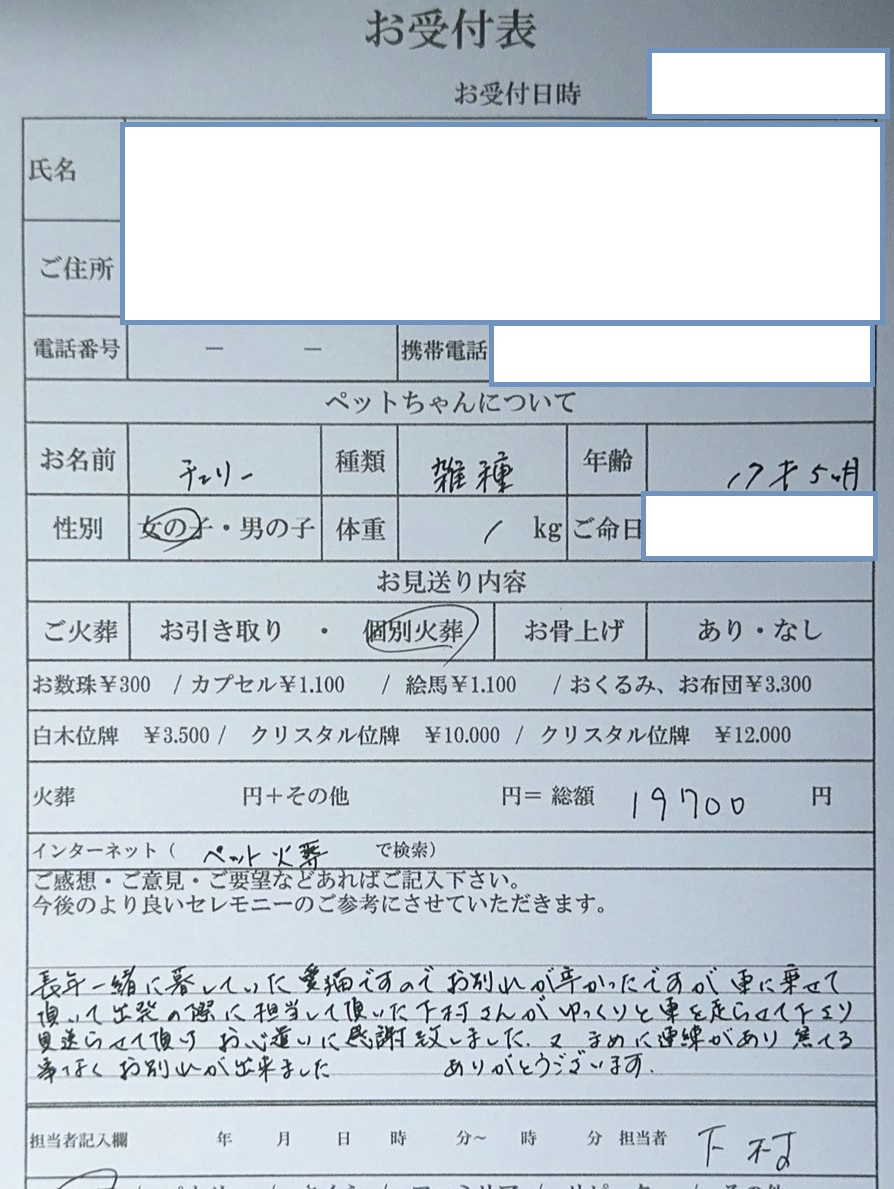 お受付表
お受付日時
氏名
ご住所
電話番号 － － 携帯電話
ペットちゃんについて
お名前 チェリー 種類 雑種 年齢 17才5ヶ月
性別 女の子・男の子 体重 1 kg ご命日
お見送り内容
ご火葬 お引き取り ・ 個別火葬 お骨上げ あり・なし
お数珠￥300 / カプセル￥1.100 / 絵馬￥1.100 / おくるみ、お布団￥3.300
白木位牌 ￥3.500 / クリスタル位牌 ￥10.000 / クリスタル位牌 ￥12.000
火葬 円＋その他 円＝ 総額 19700 円
インターネット（ ペット火葬 で検索）
ご感想・ご意見・ご要望などあればご記入下さい。
今後のより良いセレモニーのご参考にさせていただきます。
長年一緒に暮していた愛猫ですので お別れが辛かったですが 車に乗せて
頂いて出発の際に担当して頂いた下村さんがゆっくりと車を走らせて下さり
見送らせて頂け お心遣いに感謝致しました. 又 まめに連絡があり 焦てる
事なく お別れが出来ました ありがとうございます.
担当者記入欄 年 月 日 時 分～ 時 分 担当者 下村